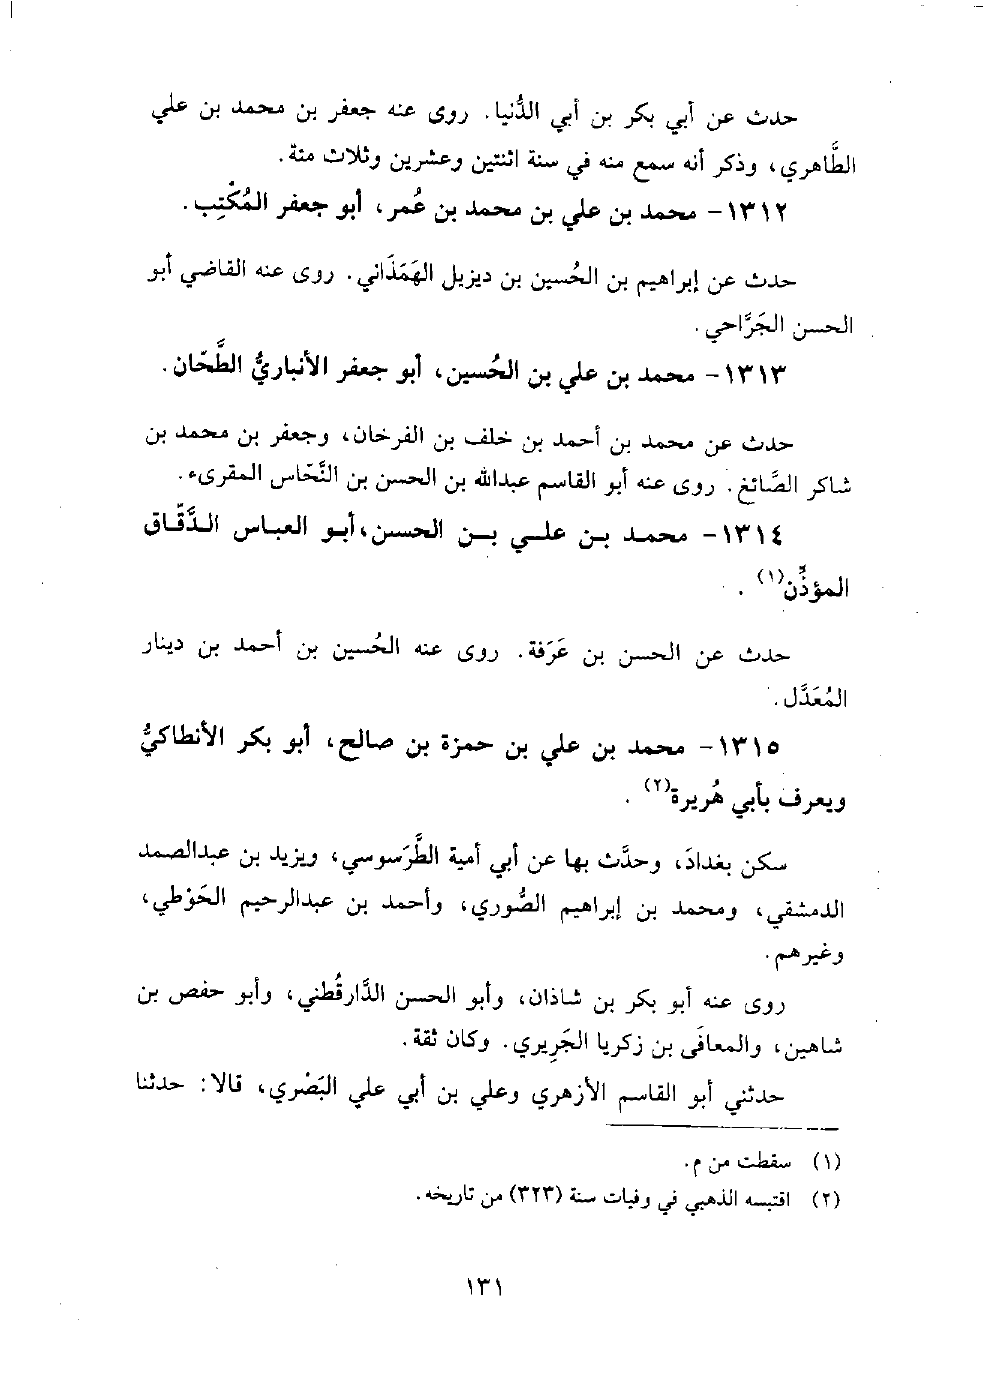 حدث عن أبي بكر بن أبي الدُّنيا. روى عنه جعفر بن محمد بن علي
الطَّاهري، وذكر أنه سمع منه في سنة اثنتين وعشرين وثلاث مئة.
١٣١٢- محمد بن علي بن محمد بن عُمر، أبو جعفر المُكْتِب.
حدث عن إبراهيم بن الحُسين بن ديزيل الهَمَذَاني. روى عنه القاضي أبو
الحسن الجَرَّاحي.
١٣١٣- محمد بن علي بن الحُسين، أبو جعفر الأنباريُّ الطَّحَّان.
حدث عن محمد بن أحمد بن خلف بن الفرخان، وجعفر بن محمد بن
شاكر الصَّائغ. روى عنه أبو القاسم عبدالله بن الحسن بن النَّخَّاس المقرىء.
١٣١٤- محمد بن علي بن الحسن، أبو العباس الدَّقَّاق
المؤذِّن(١).
حدث عن الحسن بن عَرَفة. روى عنه الحُسين بن أحمد بن دينار
المُعَدَّل.
١٣١٥- محمد بن علي بن حمزة بن صالح، أبو بكر الأنطاكيُّ
ويعرف بأبي هُريرة(٢).
سكن بغدادَ، وحدَّث بها عن أبي أمية الطَّرَسوسي، ويزيد بن عبدالصمد
الدمشقي، ومحمد بن إبراهيم الصُّوري، وأحمد بن عبدالرحيم الحَوْطي،
وغيرهم.
روى عنه أبو بكر بن شاذان، وأبو الحسن الدَّارقُطني، وأبو حفص بن
شاهين، والمعافَى بن زكريا الجَرِيري. وكان ثقة.
حدثني أبو القاسم الأزهري وعلي بن أبي علي البَصْري، قالا: حدثنا
(١) سقطت من م.
(٢) اقتبسه الذهبي في وفيات سنة (٣٢٣) من تاريخه.
١٣١